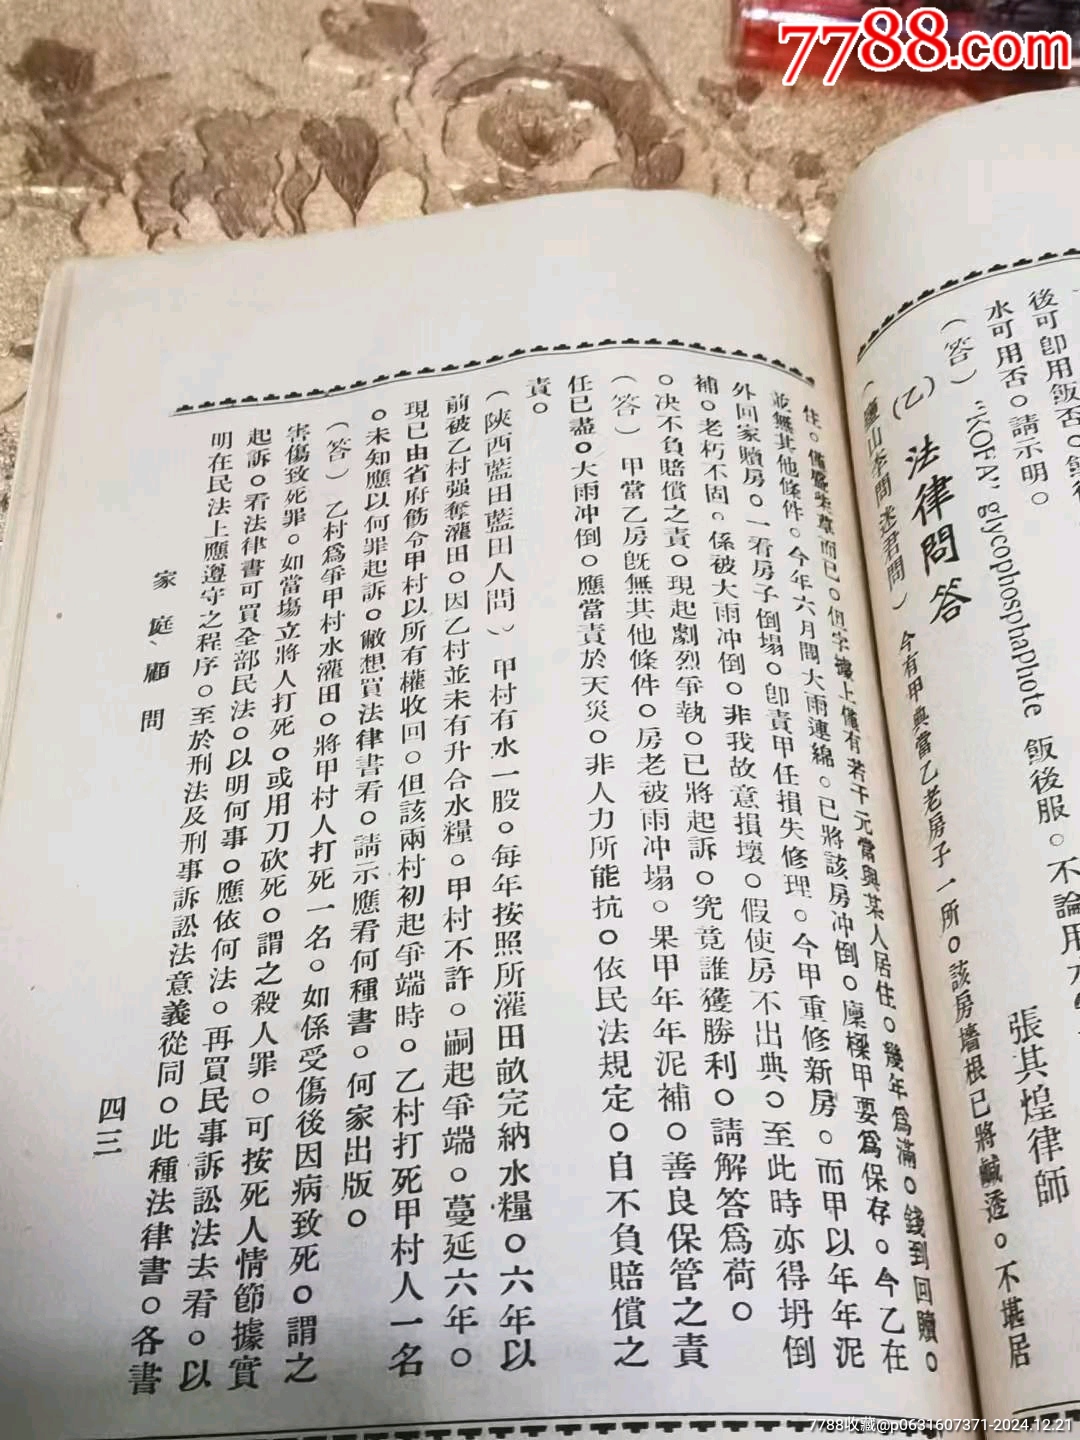 7788.com
後可卽用飯否。
水可用否。請示明。
(答)"KOFA" glycophosphaphote 飯後服。不論用
(乙)法律問答
張其煌律師
(廬山李問迷君問)今有甲典當乙老房子一所。該房墻根已將鹹透。不堪居
住。僅盛柴草而已。但字據上僅有若干元當與某人居住。幾年爲滿。錢到回贖。
並無其他條件。今年六月間大雨連綿。已將該房冲倒。凜樑甲要爲保存。今乙在
外回家贖房。一看房子倒塌。卽責甲任損失修理。今甲重修新房。而甲以年年泥
補。老朽不固。係被大雨冲倒。非我故意損壞。假使房不出典。至此時亦得坍倒
。决不負賠償之責。現起劇烈爭執。已將起訴。究竟誰獲勝利。請解答爲荷。
(答)甲當乙房旣無其他條件。房老被雨冲塌。果甲年年泥補。善良保管之責
任已盡。大雨冲倒。應當責於天災。非人力所能抗。依民法規定。自不負賠償之
責。
(陝西藍田藍田人問)甲村有水一股。每年按照所灌田畝完納水糧。六年以
前被乙村强奪灌田。因乙村並未有升合水糧。甲村不許。嗣起爭端。蔓延六年。
現已由省府飭令甲村以所有權收回。但該兩村初起爭端時。乙村打死甲村人一名
。未知應以何罪起訴。敝想買法律書看。請示應看何種書。何家出版。
(答)乙村爲爭甲村水灌田。將甲村人打死一名。如係受傷後因病致死。謂之
害傷致死罪。如當塲立將人打死。或用刀砍死。謂之殺人罪。可按死人情節據實
起訴。看法律書可買全部民法。以明何事。應依何法。再買民事訴訟法去看。以
明在民法上應遵守之程序。至於刑法及刑事訴訟法意義從同。此種法律書。各書
家庭顧問
四三
7788收藏@p0631607371-2024.12.21